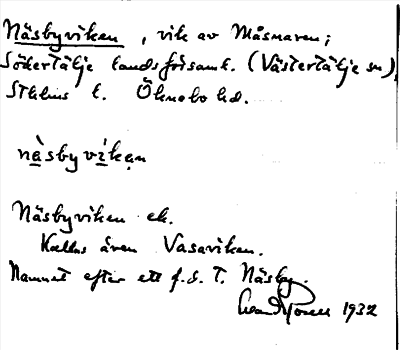 Näsbyviken, vik av Måsnaren;
Södertälje landsförsaml. (Västertälje sn),
Sthlms l. Öknebo hd.
näsbyvikən
Näsbyviken ek.
Kallas även Vasaviken.
Namnet efter ett f.d. T. Näsby.
1932